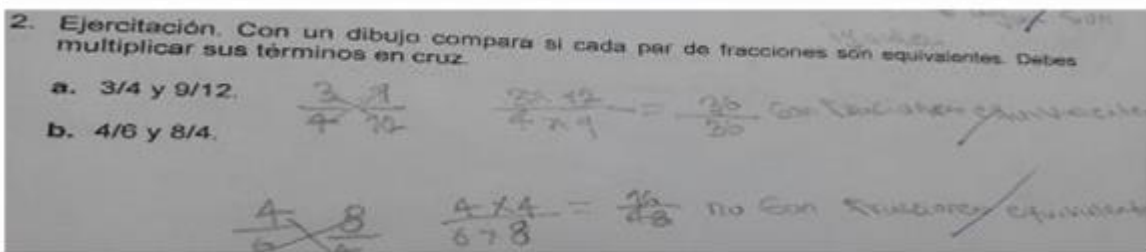 2. Ejercitación. Con un dibujo compara si cada par de fracciones son equivalentes. Debes
multiplicar sus términos en cruz.
a. 3/4 y 9/12.
3/4 9/12 3 x 12/4 x 9 = 36/36 Son fracciones equivalente
b. 4/6 y 8/4.
4/6 8/4 4 x 4/6 x 8 = 16/48 no son fracciones equivalent